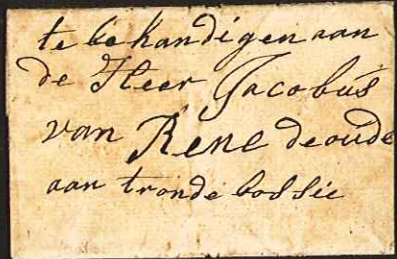 te behandigen aan
de Heer Jacobus
van Rene de oude
aan tronde bossie